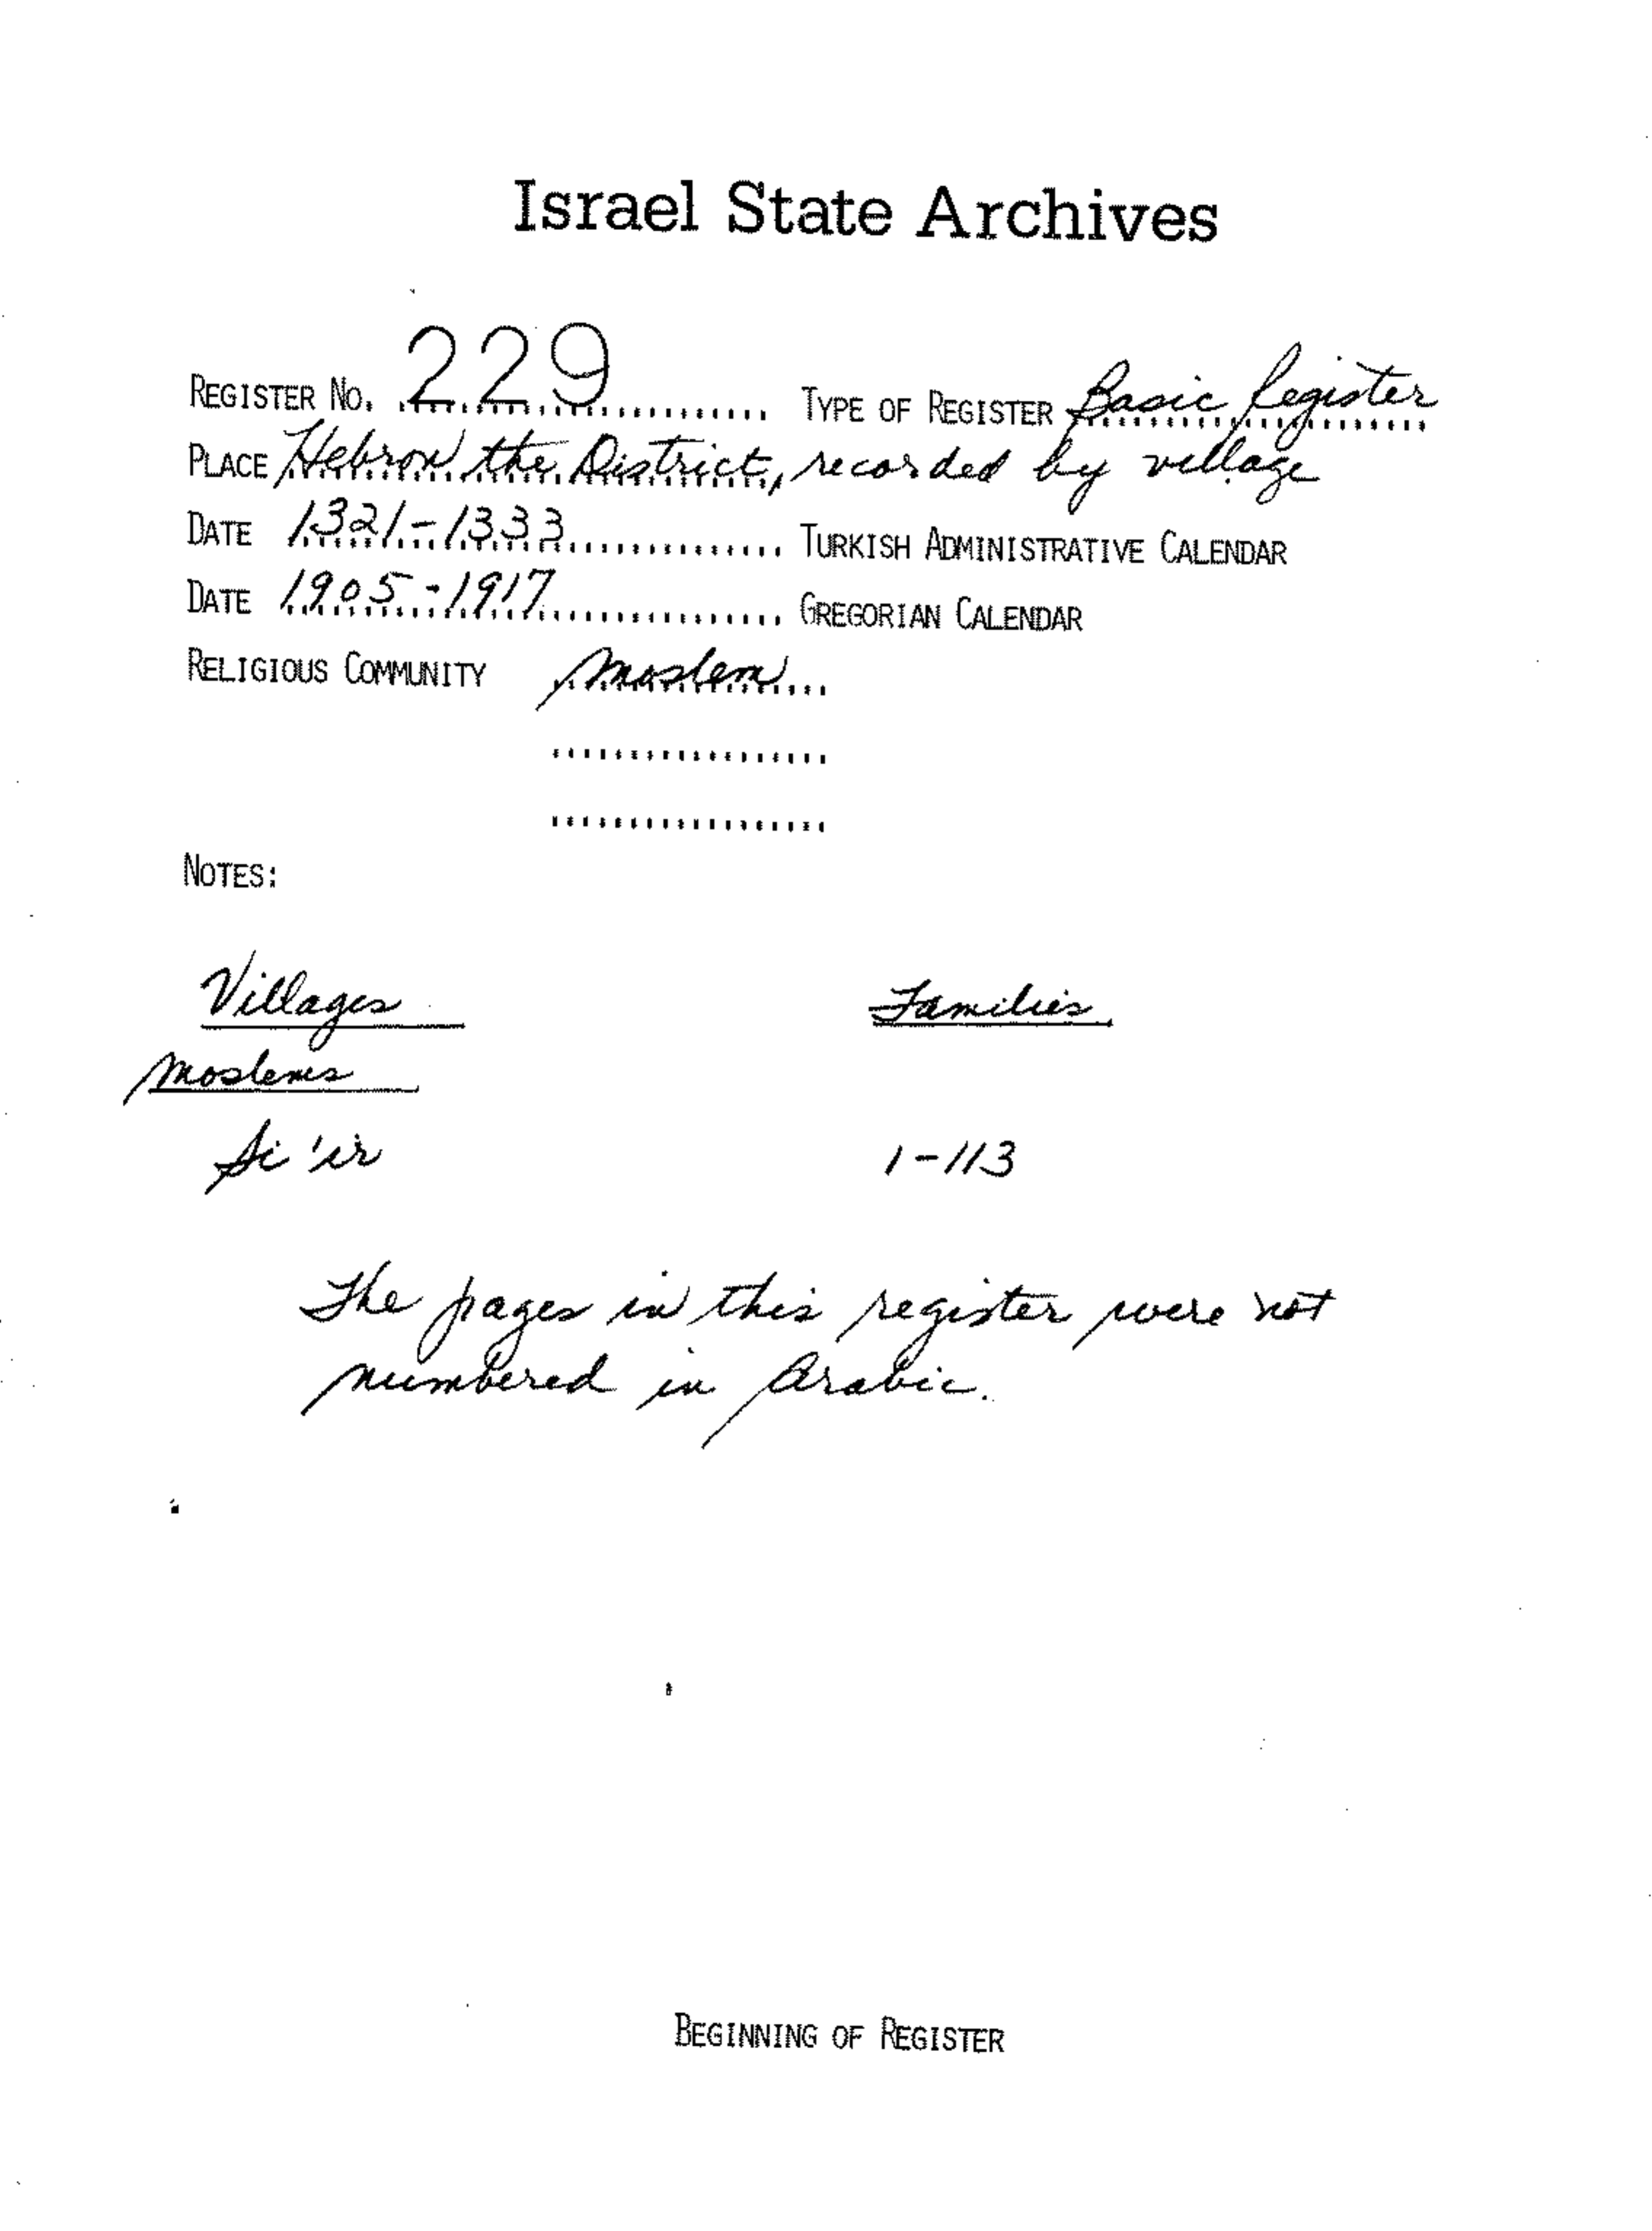 Israel State Archives
REGISTER No. 229 TYPE OF REGISTER Basic Register
PLACE Hebron the District, recorded by village
DATE 1321-1333 TURKISH ADMINISTRATIVE CALENDAR
DATE 1905-1917 GREGORIAN CALENDAR
RELIGIOUS COMMUNITY Moslem
NOTES:
Villages Families
Moslems
Si'ir 1-113
The pages in this register were not
numbered in Arabic.
BEGINNING OF REGISTER